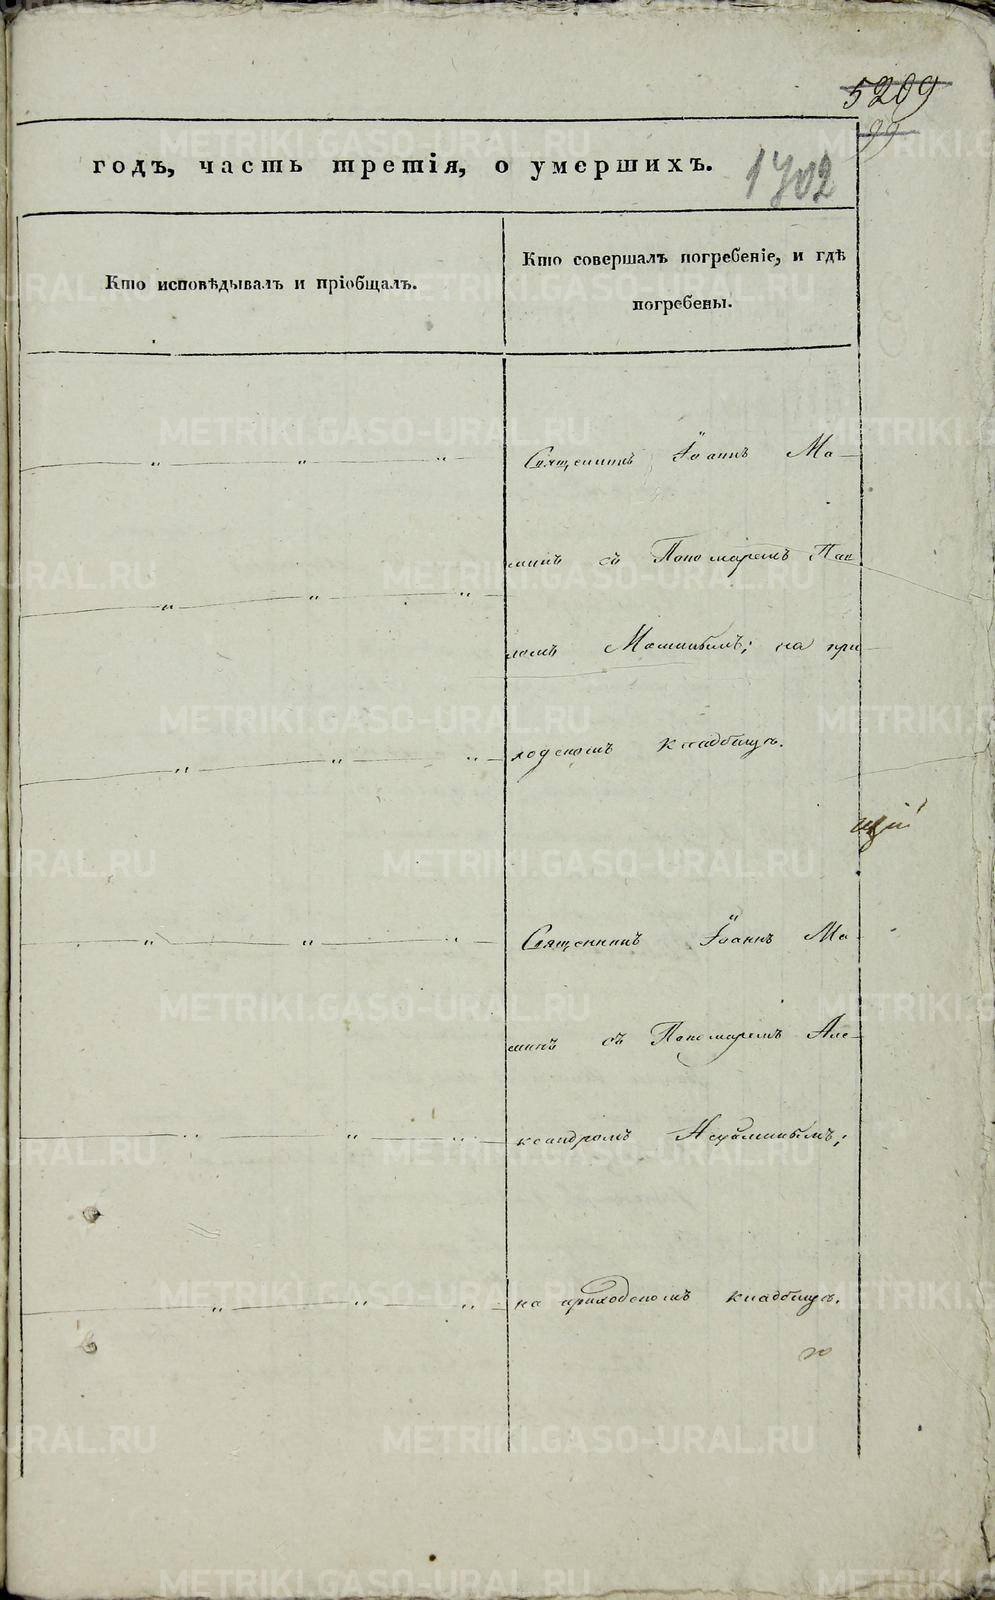 5209
99
годъ, часть третія, о умершихъ.
1702
Кто исповѣдывалъ и пріобщалъ.
Кто совершалъ погребеніе, и гдѣ
погребены.
Священникъ Іоаннъ Ма-
минъ съ Пономаремъ Пав
ломъ Маминымъ; на при
ходскомъ кладбищѣ.
щій
Священникъ Іоаннъ Ма-
минъ съ Пономаремъ Але-
ксандромъ
на приходскомъ кладбищѣ.
METRIKI.GASO-URAL.RU